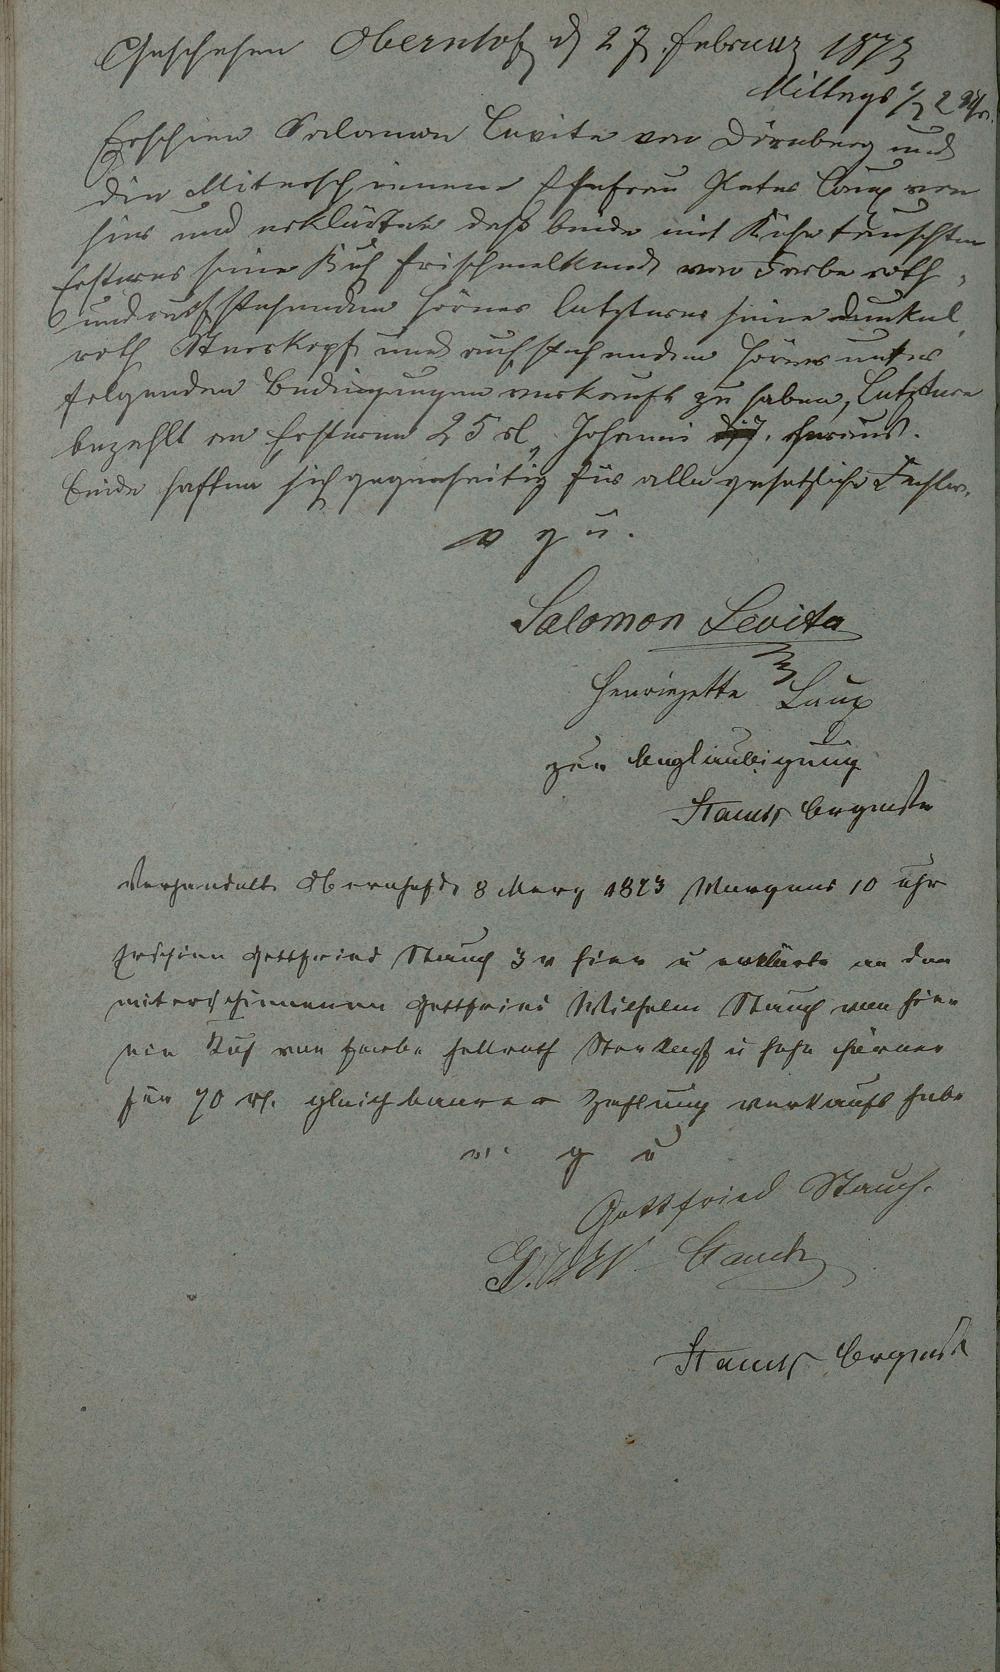 Geschehen Obernhof d 27 Februar 1873
Mittags 1/2 2 Uhr.
Erschien Salomon Levita von Dörnberg und
die Miterschienene Ehefrau Peter Laux von
hier und erklärten daß beide mit Kühe tauschten
Ersterer seine Kuh frischmelkend von Farbe roth,
und aufstehenden Hörner letzterer seine dunkel
roth Sternkopf und aufstehenden Hörner unter
folgenden Bedingungen verkauft zu haben, Letztere
bezahlt an Ersteren 25 rl, Johanni heraus.
beide haften sich gegenseitig für alle gesetzliche Fehler.
v g u.
Salomon Levita
Henriette Laux
zur Beglaubigung
Bürgmstr
Verhandelt Obernhof d 8 Merz 1873 Morgens 10 Uhr
Erschien Gottfried Stauch 3 v hier u erklärte an den
miterschienenen Gottfried Wilhelm Stauch von hier
eine Kuh von Farbe hellroth Sternkopf u hohe Hörner
für 70 rl. gleich baarer Zahlung verkauft habe
v. g u
Gottfried Stauch.
G. W Stauch
Bürgmstr